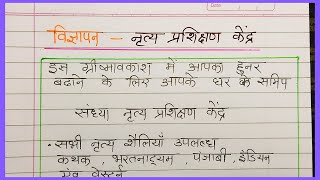 विज्ञापन – नृत्य प्रशिक्षण केंद्र
इस ग्रीष्मावकाश में आपका हुनर
बढाने के लिए आपके घर के समिप
संध्या नृत्य प्रशिक्षण केंद्र
• सभी नृत्य शैलियाँ उपलब्ध
कथक, भरतनाट्यम, पंजाबी, इंडियन
एवं वेस्टर्न